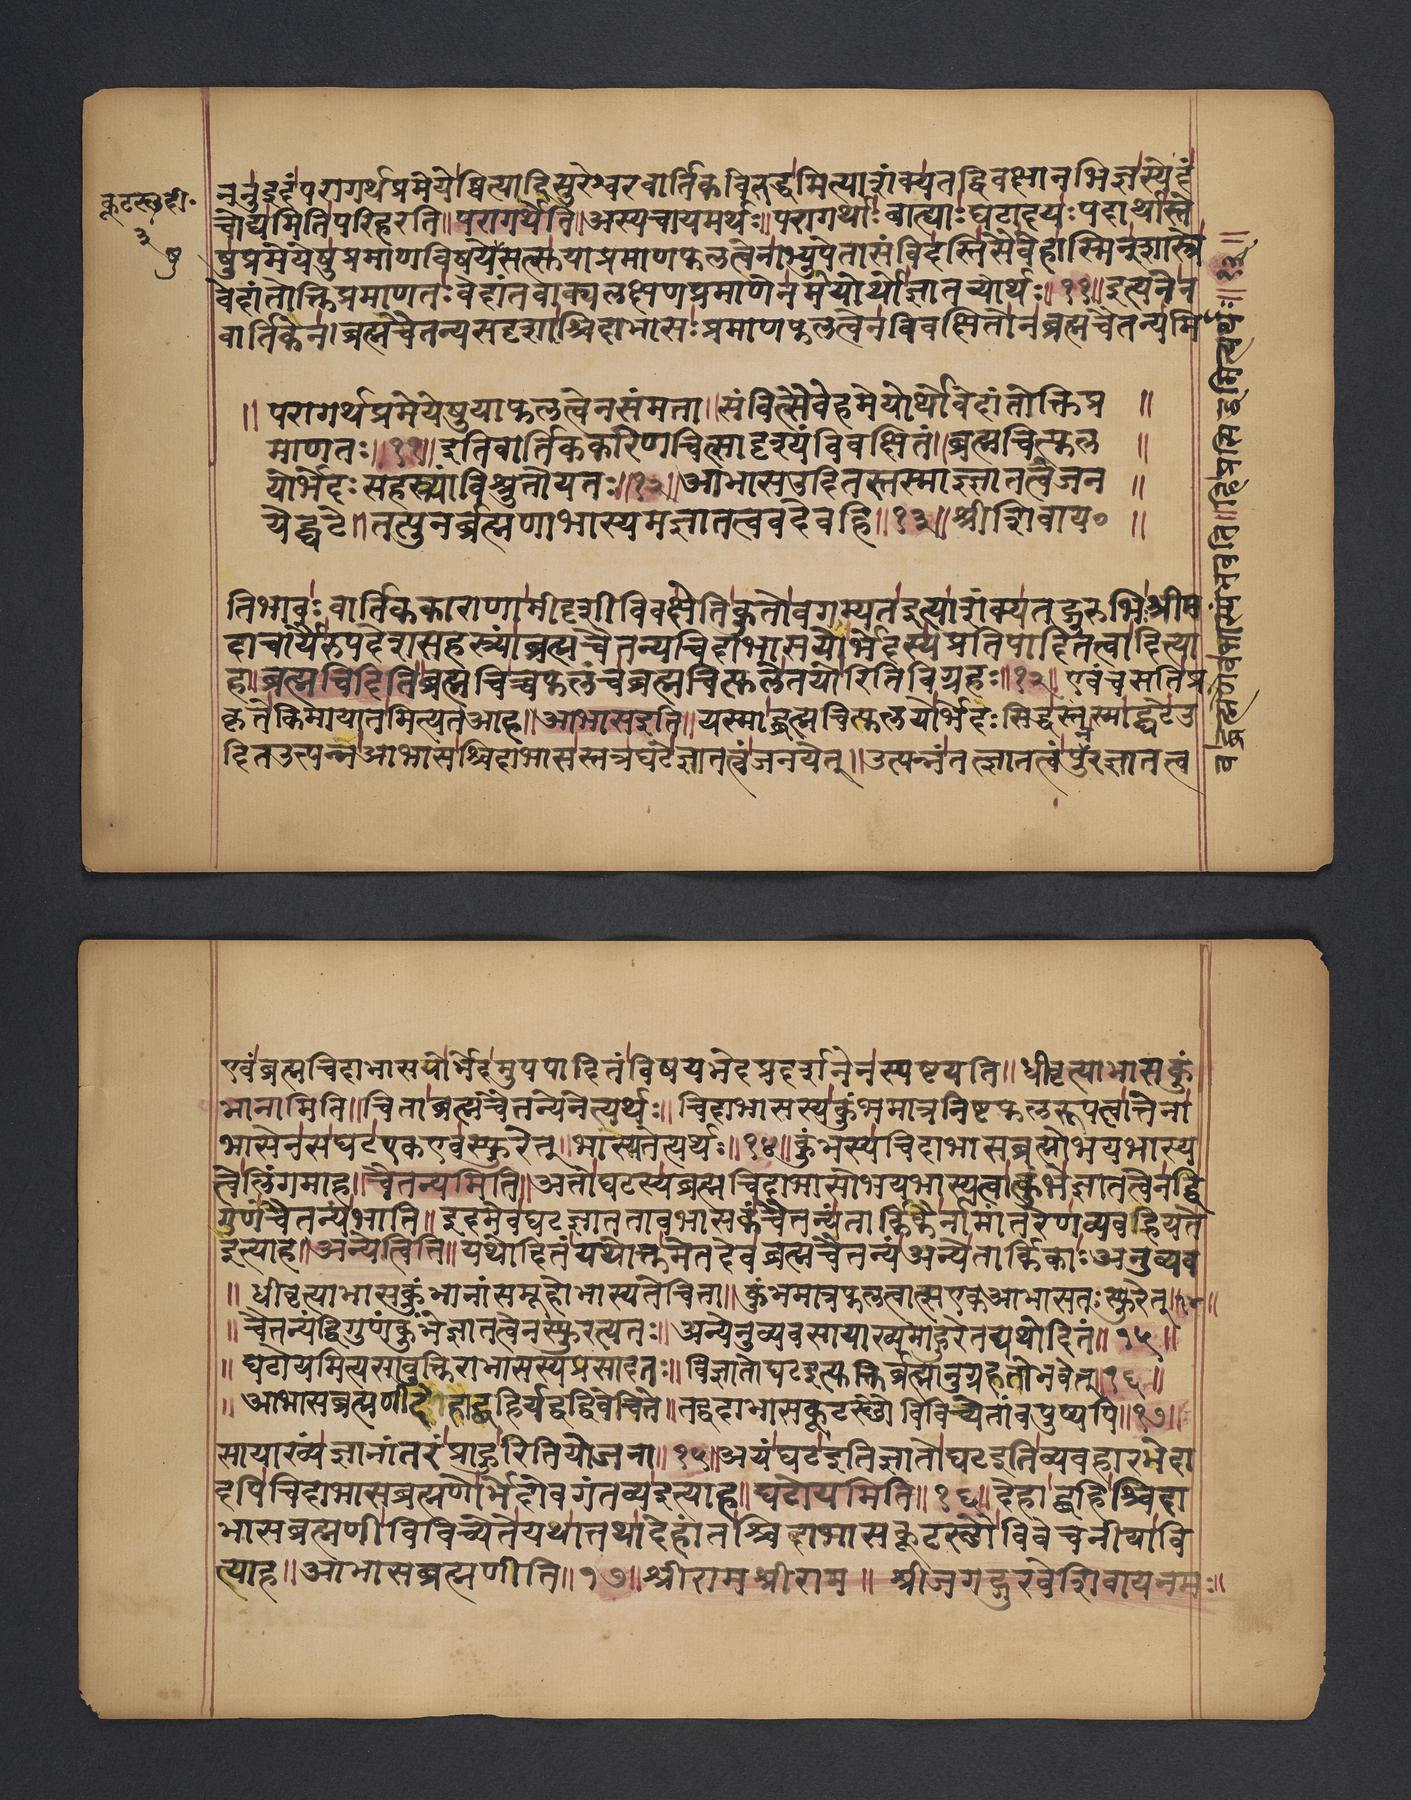 कूटस्थदी॰
३
षु
ननुइदंपरागर्थप्रमेयेष्वित्यादिसुरेश्वरवार्तिकविरुद्धमित्याशंक्यतद्विवक्षानभिज्ञस्येदं
चोद्यमितिपरिहरति॥परागर्थेति॥अस्यचायमर्थः॥परागर्थाःबाह्याःघटादयःपदार्थास्ते
षुप्रमेयेषुप्रमाणविषयेसत्सुयाप्रमाणफलत्वेनाभ्युपेतासंविदस्तिसैवेहास्मिन्शास्त्रे
वेदांतोक्तिप्रमाणतःवेदांतवाक्यलक्षणप्रमाणेनमेयोर्थोज्ञातव्यार्थः॥११॥इत्यनेन
वार्तिकेन।ब्रह्मचैतन्यसदृशश्चिदाभासःप्रमाणफलत्वेनविवक्षितोनब्रह्मचैतन्यमि
॥परागर्थप्रमेयेषुयाफलत्वेनसंमता॥संवित्सैवेहमेयोर्थोवेदांतोक्तिप्र॥
माणतः॥११॥इतिवार्तिककारेणचित्सादृश्यंविवक्षितं॥ब्रह्मचित्फल॥
योर्भेदःसहस्र्यांविश्रुतोयतः॥१२॥आभासउदितस्तस्माज्ज्ञातत्वंजन॥
येद्घटे॥तत्पुनर्ब्रह्मणाभास्यमज्ञातत्ववदेवहि॥१३॥श्रीशिवाय०॥
तिभावः॥वार्तिककाराणामीदृशीविवक्षेतिकुतोवगम्यतइत्याशंक्यतद्गुरुभिःश्रीम
दाचार्यैरुपदेशसहस्र्यांब्रह्मचैतन्यचिदाभासयोर्भेदस्यप्रतिपादितत्वादित्या
ह॥ब्रह्मचिदिति॥ब्रह्मचिच्चफलंचब्रह्मचित्फलेतयोरितिविग्रहः॥१२॥एवंचसतिप्र
कृतेकिमायातमित्यतआह॥आभासइति॥यस्माद्ब्रह्मचित्फलयोर्भेदःसिद्धस्तस्माद्घटेउ
दितउत्पन्नआभासश्चिदाभासस्तत्रघटेज्ञातत्वंजनयेत्॥उत्पन्नंतज्ज्ञातत्वंपुनरज्ञातत्व
वद्ब्रह्मणैवभास्यंभवति॥हिप्रसिद्धमित्यर्थः॥१३॥
एवंब्रह्मचिदाभासयोर्भेदमुपपादितंविषयभेदप्रदर्शनेनस्पष्टयति॥धीवृत्याभासकुं
भानामिति॥चिताब्रह्मचैतन्येनेत्यर्थः॥चिदाभासस्यकुंभमात्रनिष्टफलरूपत्वात्तेना
भासेनसघटएकएवस्फुरेत्॥भास्यतेत्यर्थः॥१४॥कुंभस्यचिदाभासब्रह्मोभयभास्य
त्वेलिंगमाह॥चैतन्यमिति॥अतोघटस्यब्रह्मचिदाभासोभयभास्यत्वात्कुंभेज्ञातत्वेनद्वि
गुणंचैतन्यंभाति॥इदमेवघटज्ञाततावभासकंचैतन्यंतार्किकैर्नामांतरेणव्यवह्रियते
इत्याह॥अन्येत्विति॥यथोदितंयथोक्तमेतदेवब्रह्मचैतन्यंअन्येतार्किकाःअनुव्यव
॥धीवृत्याभासकुंभानांसमूहोभास्यतेचिता॥कुंभमात्रफलत्वात्सएकआभासतःस्फुरेत्॥१४॥
॥चैतन्यंद्विगुणंकुंभेज्ञातत्वेनस्फुरत्यतः॥अन्येनुव्यवसायाख्यमाहुरेतद्यथोदितं॥१५॥
॥घटोयमित्यसावुक्तिराभासस्यप्रसादतः॥विज्ञातोघटइत्युक्तिर्ब्रह्मानुग्रहतोभवेत्॥१६॥
॥आभासब्रह्मणीदेहाद्बहिर्यद्वद्विवेचिते॥तद्वदाभासकूटस्थौविविच्येतांवपुष्यपि॥१७॥
सायाख्यंज्ञानांतरंप्राहुरितियोजना॥१५॥अयंघटइतिज्ञातोघटइतिव्यवहारभेदा
दपिचिदाभासब्रह्मणोर्भेदोवगंतव्यइत्याह॥घटोयमिति॥१६॥देहाद्बहिश्चिदा
भासब्रह्मणीविविच्येतेयथातथादेहांतश्चिदाभासकूटस्थौविवेचनीयावि
त्याह॥आभासब्रह्मणीति॥१७॥श्रीरामश्रीराम॥श्रीजगद्गुरवेशिवायनमः॥